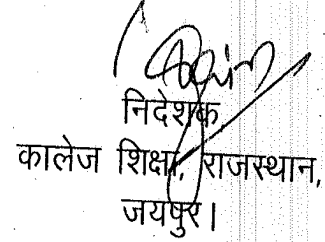 निदेशक
कालेज शिक्षा, राजस्थान,
जयपुर।